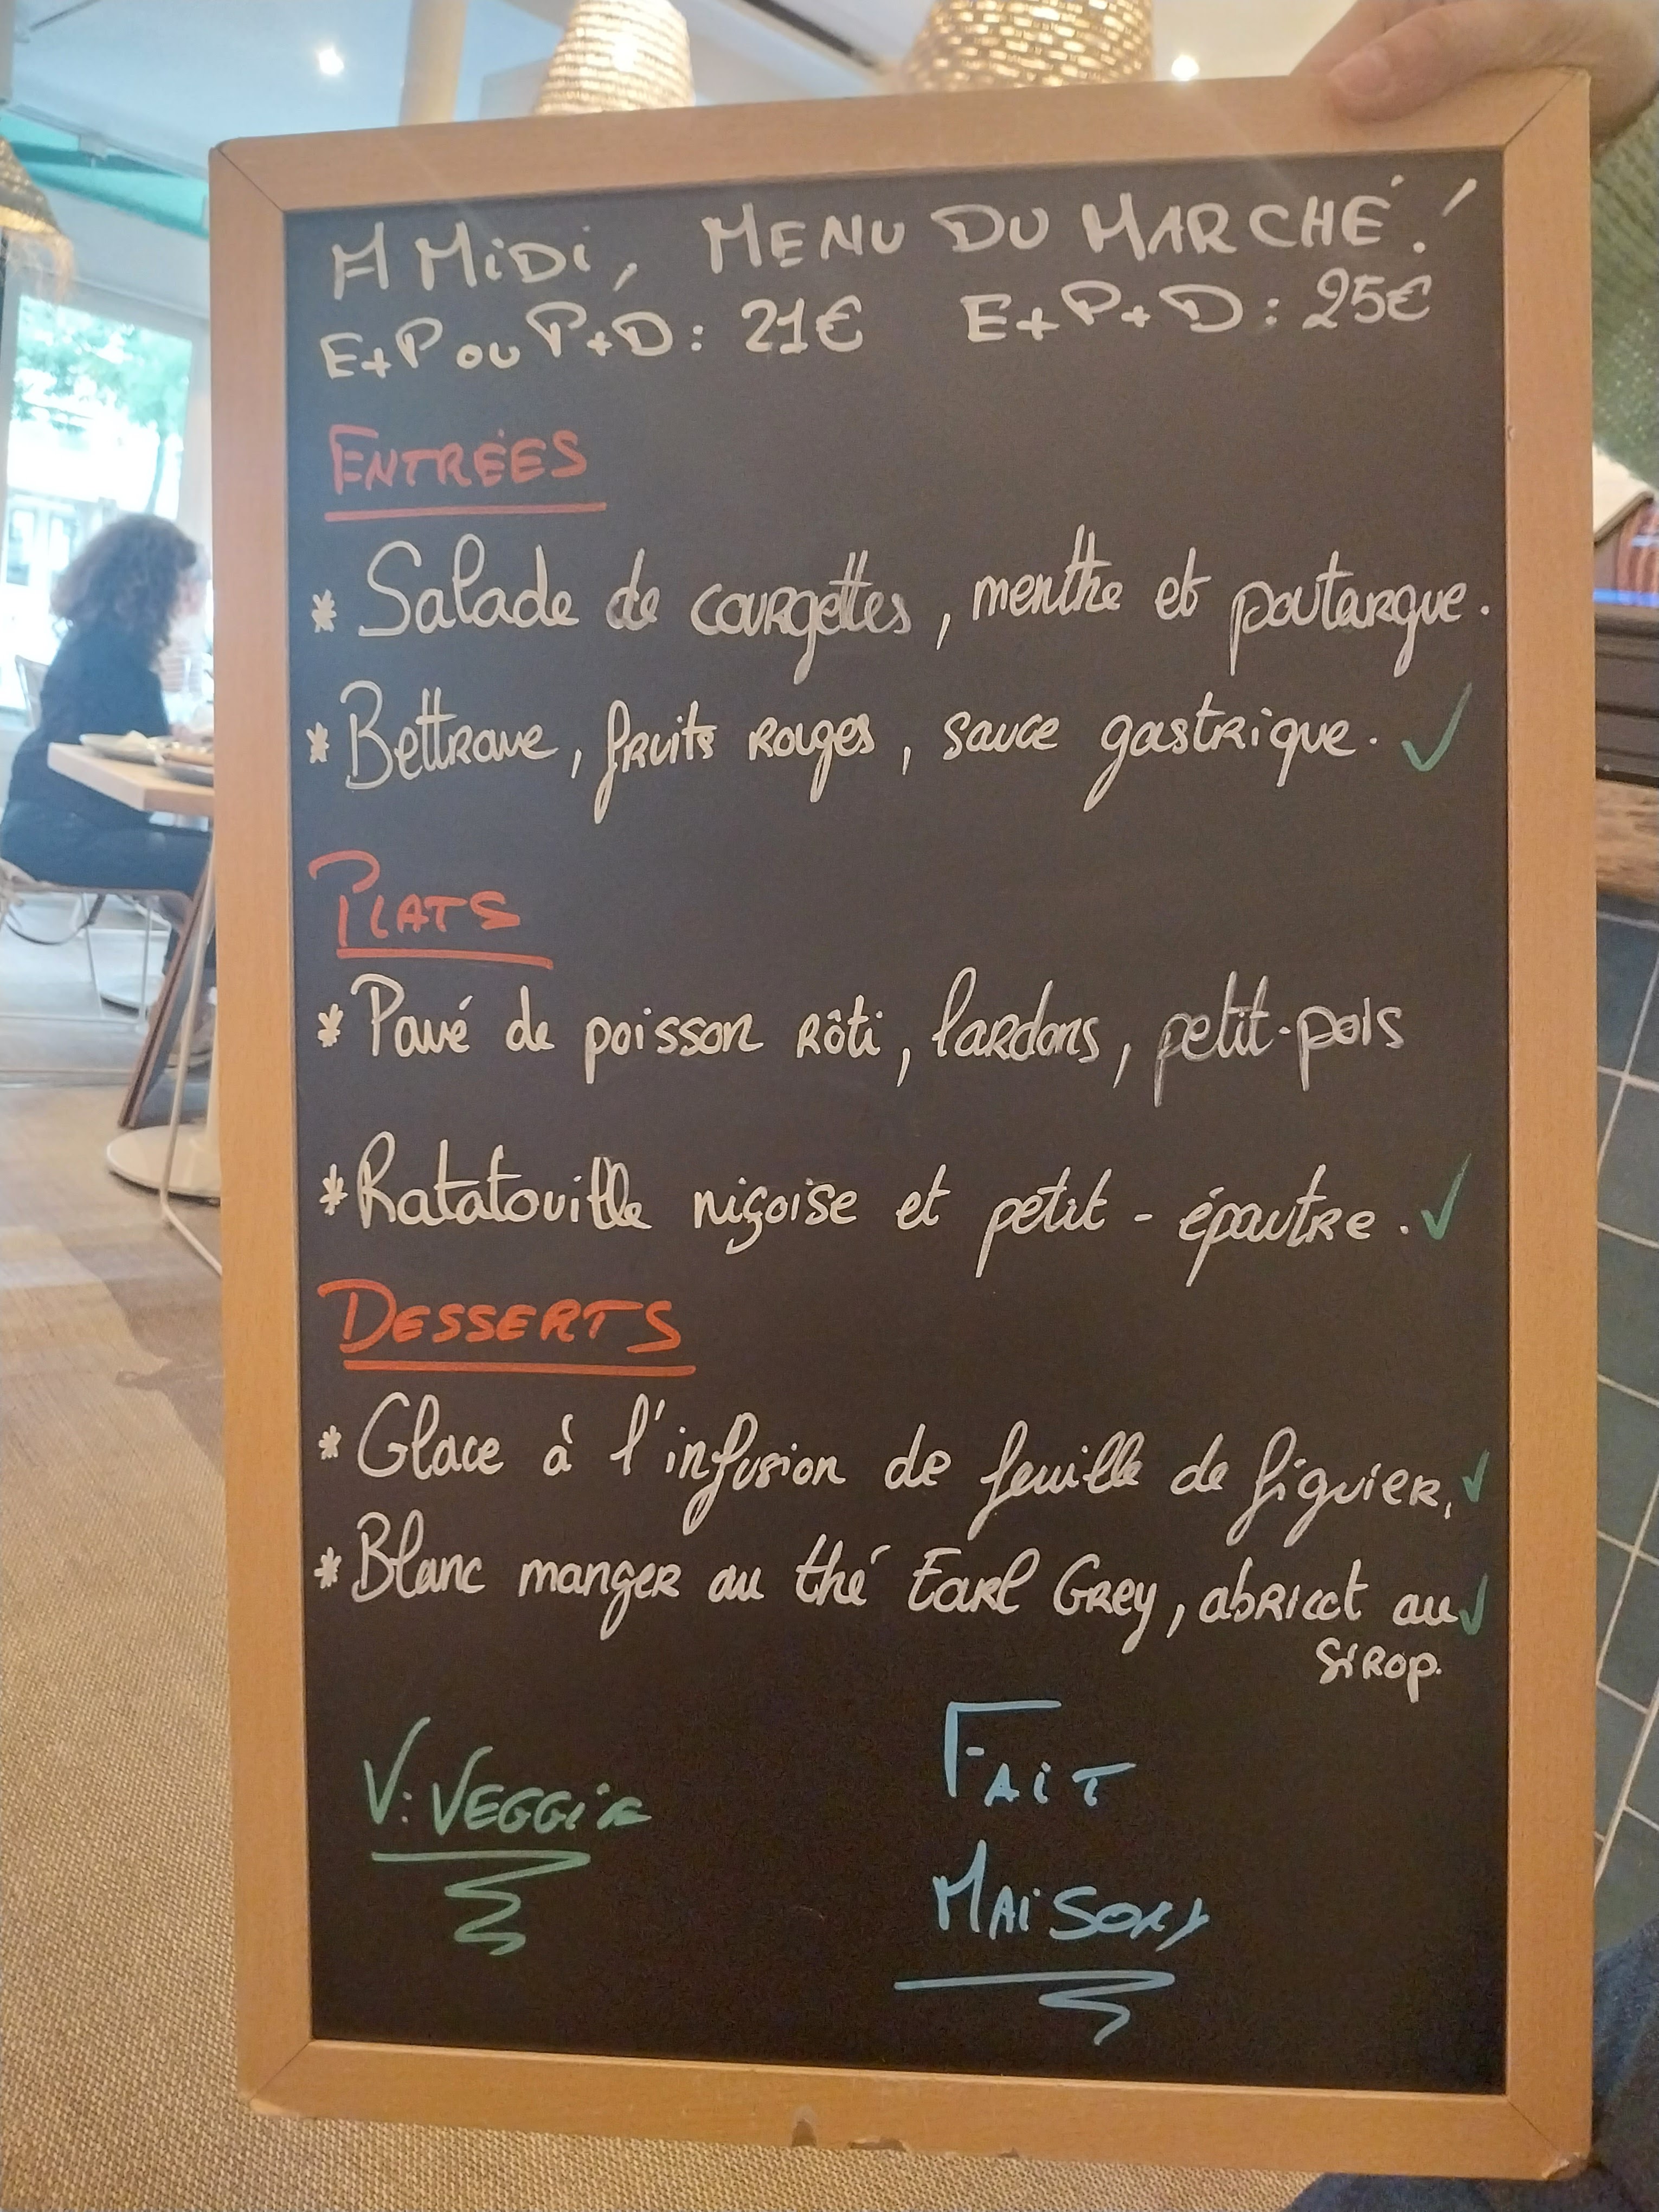 A MiDi, MENU DU MARCHÉ !
E+P ou P+D : 21€ E+P+D : 25€
ENTRÉES
* Salade de courgettes, menthe et poutargue.
* Bettrave, fruits rouges, sauce gastrique. ✓
PLATS
* Pavé de poisson rôti, lardons, petit-pois
* Ratatouille niçoise et petit - épautre. ✓
DESSERTS
* Glace à l'infusion de feuille de figuier. ✓
* Blanc manger au thé Earl Grey, abricot au ✓
sirop.
V : VEGGiE
FAiT
MAiSON